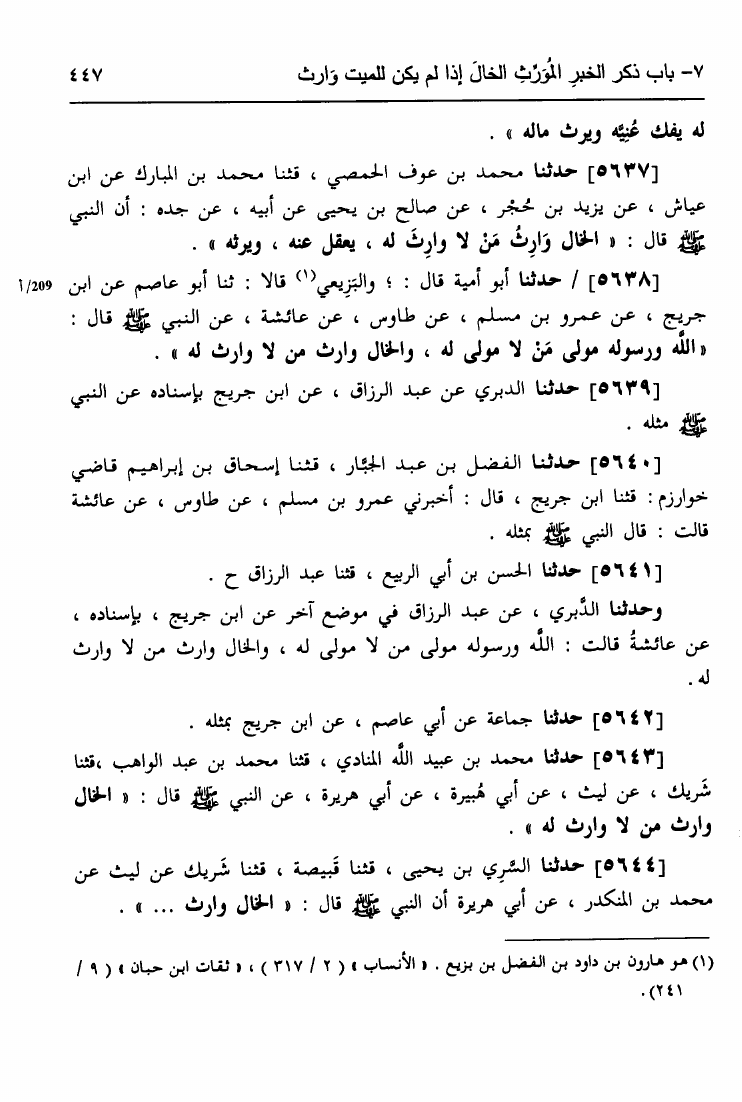 ٧- باب ذكر الخبرِ المُوَرِّثِ الخالَ إذا لم يكن للميت وَارث ٤٤٧
له يفك عُنِيَّه ويرث ماله » .
[٥٦٣٧] حدثنا محمد بن عوف الحمصي ، قثنا محمد بن المبارك عن ابن
عياش ، عن يزيد بن حُجْر ، عن صالح بن يحيى عن أبيه ، عن جده : أن النبي
ﷺ قال : « الخال وَارِثُ مَنْ لا وارِثَ له ، يعقل عنه ، ويرثه » .
[٥٦٣٨] / حدثنا أبو أمية قال : ؛ والبَزِيعي(١) قالا : ثنا أبو عاصم عن ابن 209/أ
جريج ، عن عمرو بن مسلم ، عن طاوس ، عن عائشة ، عن النبي ﷺ قال :
« اللَّه ورسوله مولى مَنْ لا مولى له ، والخال وارث من لا وارث له » .
[٥٦٣٩] حدثنا الدبري عن عبد الرزاق ، عن ابن جريج بإسناده عن النبي
ﷺ مثله .
[٥٦٤٠] حدثنا الفضل بن عبد الجبَّار ، قثنا إسحاق بن إبراهيم قاضي
خوارزم : قثنا ابن جريج ، قال : أخبرني عمرو بن مسلم ، عن طاوس ، عن عائشة
قالت : قال النبي ﷺ بمثله .
[٥٦٤١] حدثنا الحسن بن أبي الربيع ، قثنا عبد الرزاق ح .
وحدثنا الدَّبري ، عن عبد الرزاق في موضع آخر عن ابن جريج ، بإسناده ،
عن عائشةُ قالت : اللَّه ورسوله مولى من لا مولى له ، والخال وارث من لا وارث
له .
[٥٦٤٢] حدثنا جماعة عن أبي عاصم ، عن ابن جريج بمثله .
[٥٦٤٣] حدثنا محمد بن عبيد اللَّه المنادي ، قثنا محمد بن عبد الواهب ،قثنا
شَريك ، عن ليث ، عن أبي هُبيرة ، عن أبي هريرة ، عن النبي ﷺ قال : « الخال
وارث من لا وارث له » .
[٥٦٤٤] حدثنا السَّرِي بن يحيى ، قثنا قَبيصة ، قثنا شَريك عن ليث عن
محمد بن المنكدر ، عن أبي هريرة أن النبي ﷺ قال : « الخال وارث ... » .
(١) هو هارون بن داود بن الفضل بن بزيع . « الأنساب » ( ٢ / ٣١٧ ) ، « ثقات ابن حبان » ( ٩ /
٢٤١).